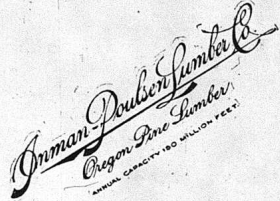 Inman-Poulsen Lumber Co.
Oregon Pine Lumber
ANNUAL CAPACITY 180 MILLION FEET